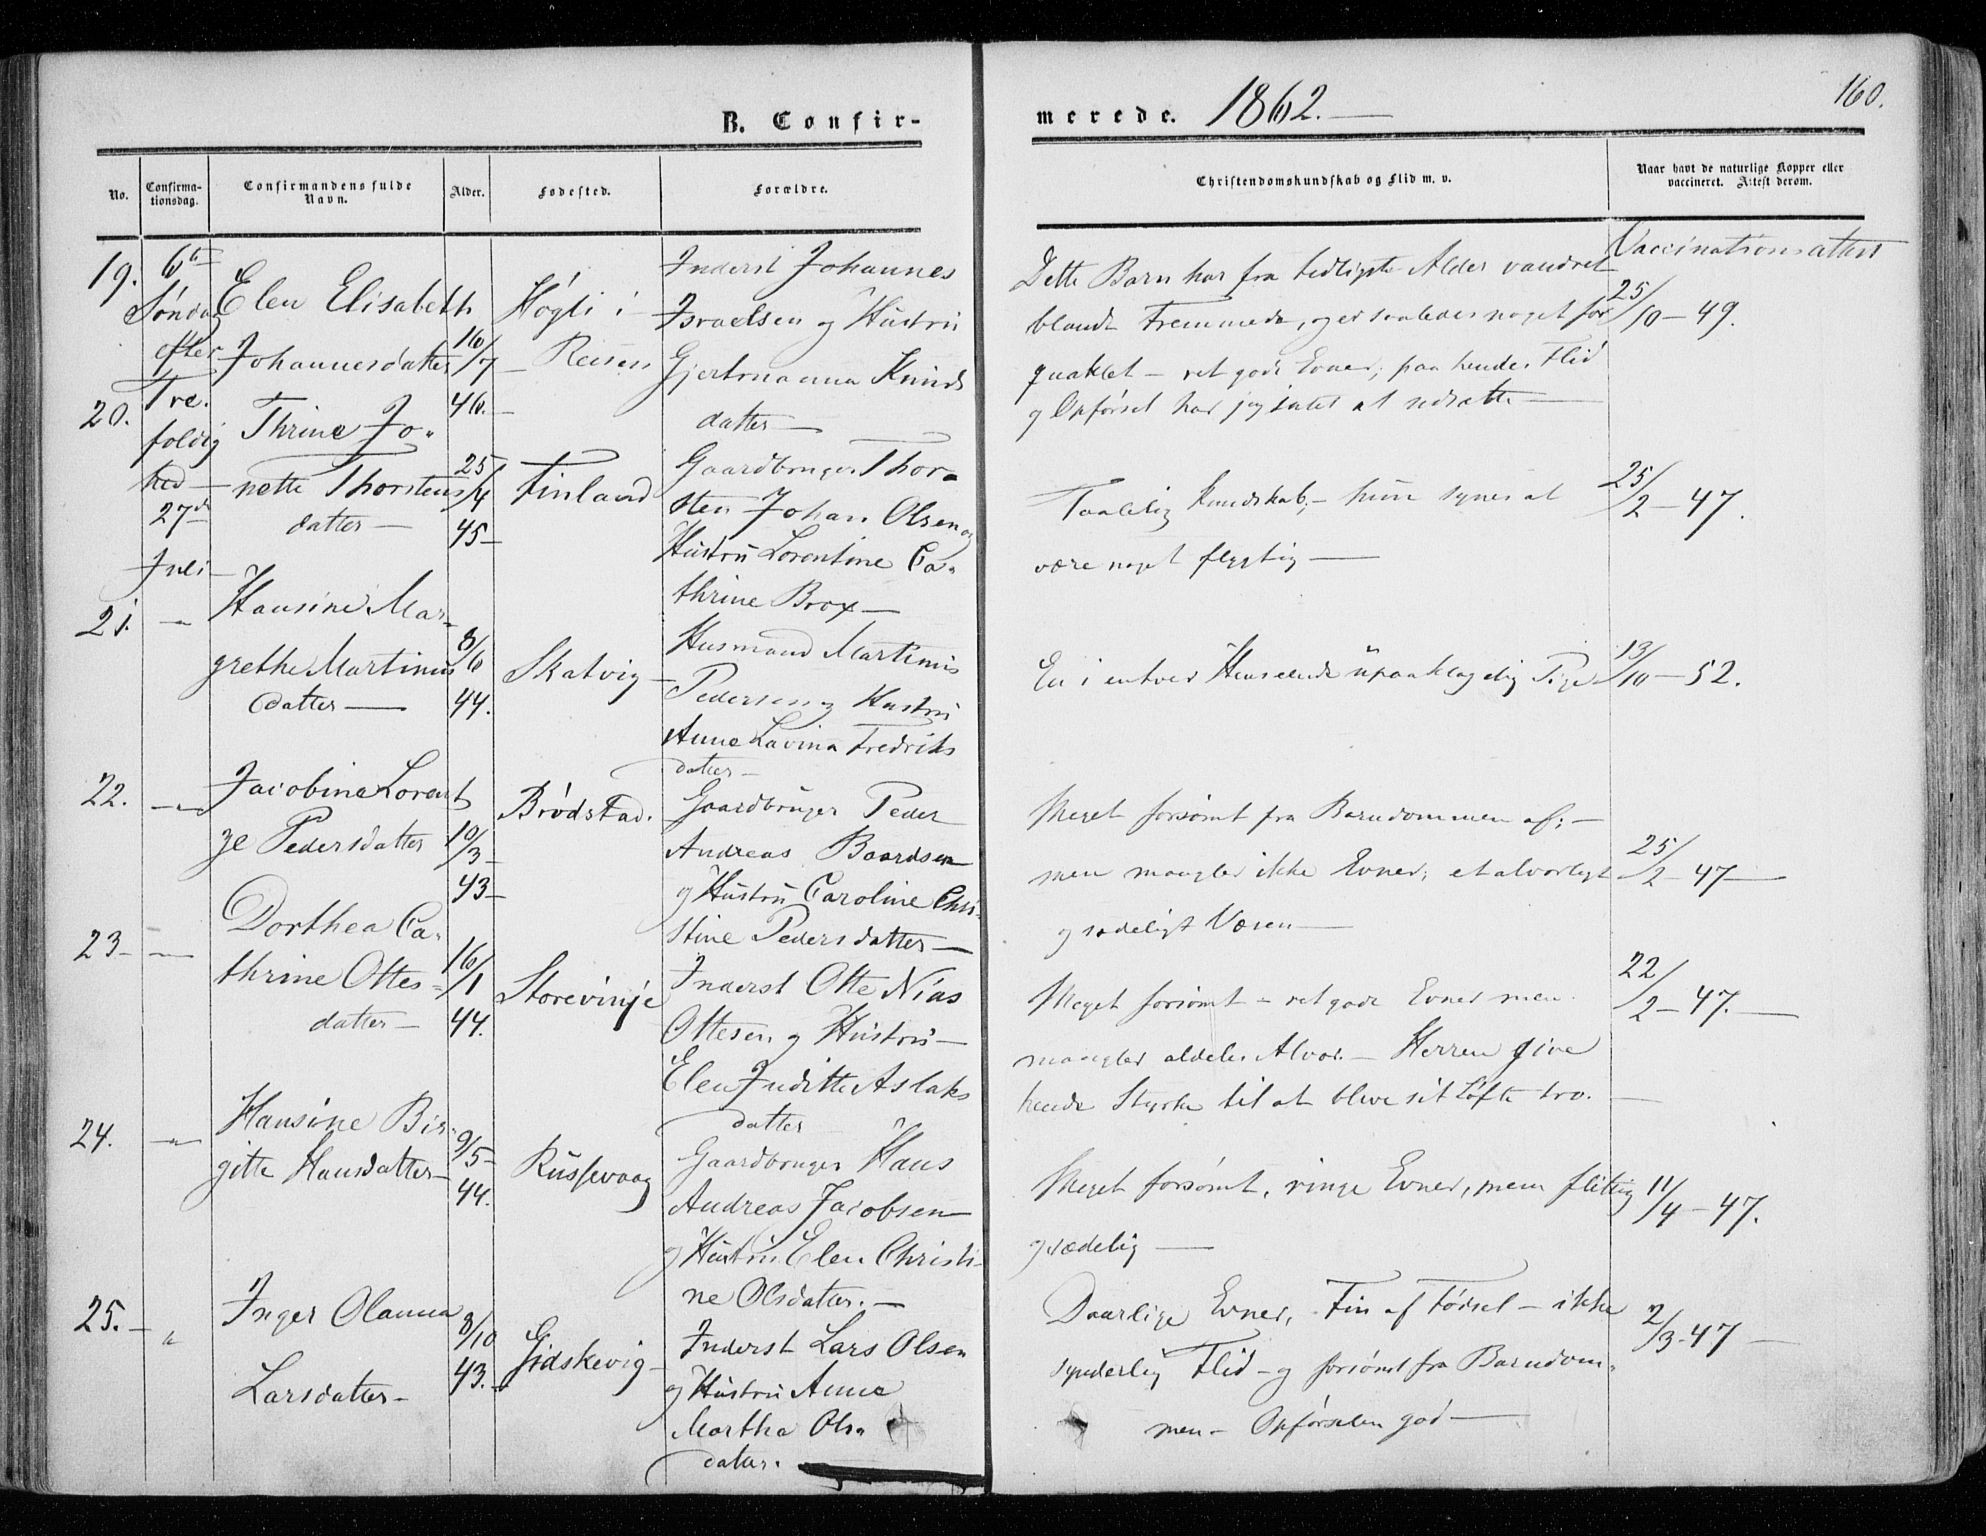 B. Confir-
merede. 1862.—
160.
No.
Confirma-
tionsdag.
Confirmandens fulde
Navn.
Alder.
Fødested.
Forældre.
Christendomskundskab og Flid m. v.
Naar havt de naturlige Kopper eller
vaccineret. Attest derom.
19.
6te
Søndag
efter
Tre.
foldig
hed —
27de
Juli —
Elen Elisabeth
Johannesdatter
16/7 —
46. —
Høgli i
Reisen
Inderst Johannes
Israelsen og Hustru
Gjertruanna Knuds
datter —
Dette Barn har fra tidligste Alder vandret
blandt Fremmede, og er saaledes noget for
qvaklet — ret gode Evner; paa hendes Flid
og Opførsel har jeg intet at udsætte —
Vaccinationsattest
25/10 — 49.
20.
Thrine Jo-
nette Thorstens
datter —
25/4
45 —
Finland
Gaardbruger Thor-
sten Johan Olsen og
Hustru Lorentine Ca-
thrine Brox —
Taalelig Kundskab; — hun synes at
være noget flygtig —
25/2 — 47.
21. — "
Hansine Mar-
grethe Martinus
datter —
8/6
44.
Skatvig —
Husmand Martinus
Pedersen og Hustru
Anne Lavina Fredriks
datter —
En i enhver Henseende upaaklagelig Pige
13/10 — 52.
22. — " —
Jacobine Lorent
ze Pedersdatter
10/3 —
43 —
Brødstad.
Gaardbruger Peder
Andreas Baardsen
og Hustru Caroline Chri-
stine Pedersdatter —
Meget forsømt fra Barndommen af; —
men mangler ikke Evner; et alvorligt
og sædeligt Væsen —
25/2 — 47 —
23 — " —
Dorthea Ca-
thrine Ottes-
datter —
16/1
44.
Storevinje
Inderst Otte Nias
Ottesen og Hustru —
Elen Judithe Aslaks
datter
Meget forsømt — ret gode Evner men
mangler aldeles Alvor. — Herren give
hende Styrke til at blive sit Løfte tro. —
22/2 — 47. —
24. — " —
Hansine Bir-
gitte Hansdatter —
9/5 —
44.
Russevaag
Gaardbruger Hans
Andreas Jacobsen
og Hustru Elen Christi-
ne Olsdatter. —
Meget forsømt, ringe Evner, men flittig
og sædelig —
11/4 — 47.
25. — "
Inger Olanna
Larsdatter —
8/10
43. —
Gidskevig —
Inderst Lars Olsen
og Hustru Anne
Martha Ols-
datter.
Daarlige Evner, Fin af Fødsel — ikke
synderlig Flid — og forsømt fra Barndom-
men — Opførselen god —
2/3 — 47 —